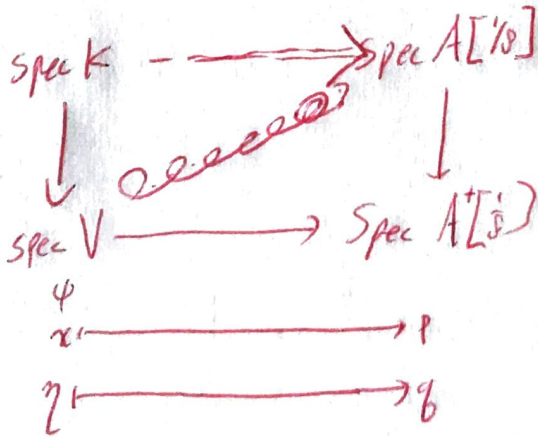 Spec K → Spec A[1/s]
Spec V → Spec A⁺[1/s]
ψ
x ↦ p
η ↦ q